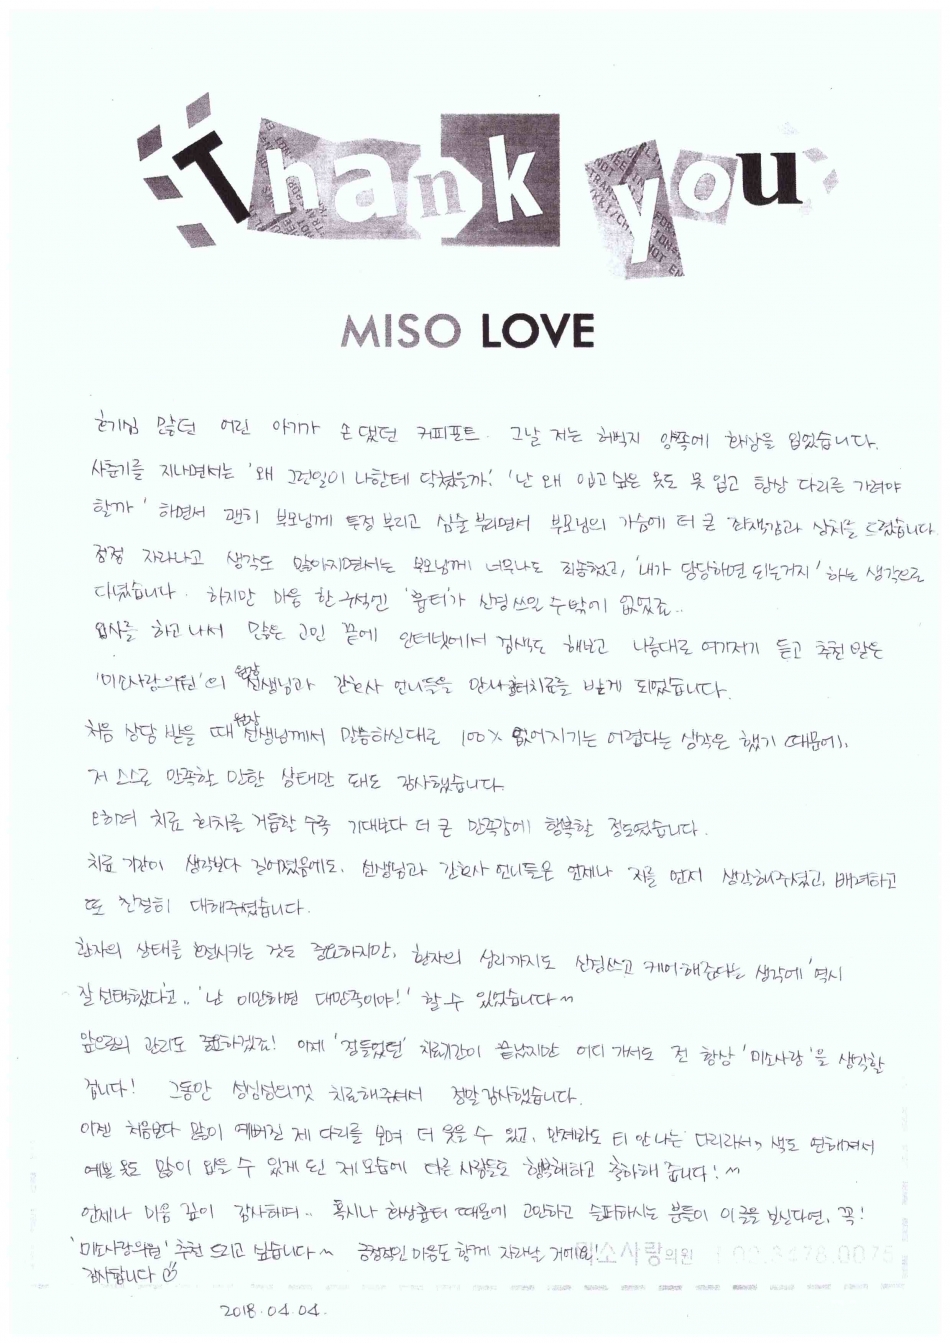 Thank you
MISO LOVE
호기심 많던 어린 아기가 손 댔던 커피포트. 그날 저는 허벅지 양쪽에 화상을 입었습니다.
사춘기를 지나면서는 '왜 그런일이 나한테 닥쳤을까', '난 왜 입고싶은 옷도 못 입고 항상 다리를 가려야
할까' 하면서 괜히 부모님께 투정 부리고 심술 부리면서 부모님의 가슴에 더 큰 죄책감과 상처를 드렸습니다.
점점 자라나고 생각도 많아지면서는 부모님께 너무나도 죄송했고, '내가 당당하면 되는거지' 하는 생각으로
다녔습니다. 하지만 마음 한구석엔 '흉터'가 신경쓰일 수밖에 없었죠..
입사를 하고나서 많은 고민 끝에 인터넷에서 검색도 해보고 나름대로 여기저기 듣고 추천 받은
'미소사랑의원'의 원장 선생님과 간호사 언니들을 만나 흉터치료를 받게 되었습니다.
처음 상담 받을 때 원장 선생님께서 말씀하신대로 100% 없어지기는 어렵다는 생각은 했기 때문에,
저 스스로 만족할 만한 상태만 돼도 감사했습니다.
오히려 치료 회차를 거듭할 수록 기대보다 더 큰 만족감에 행복할 정도였습니다.
치료 기간이 생각보다 길어졌음에도, 선생님과 간호사 언니들은 언제나 저를 먼저 생각해주셨고, 배려하고
또 친절히 대해주셨습니다.
환자의 상태를 호전시키는 것도 중요하지만, 환자의 심리까지도 신경쓰고 케어해준다는 생각에 '역시
잘 선택했다'고.. '난 이만하면 대만족이야!' 할 수 있었습니다~
앞으로의 관리도 중요하겠죠! 이제 '정들었던' 치료기간이 끝났지만 어디 가서도 전 항상 '미소사랑'을 생각할
겁니다! 그동안 성심성의껏 치료해주셔서 정말 감사했습니다.
이젠 처음보다 많이 예뻐진 제 다리를 보며 더 웃을 수 있고, 만져봐도 티 안나는 다리라서, 색도 연해져서
예쁜 옷도 많이 입을 수 있게 된 제모습에 다른 사람들도 행복해하고 축하해 줍니다! ~
언제나 마음 깊이 감사하며.. 혹시나 화상흉터 때문에 고민하고 슬퍼하시는 분들이 이 글을 보신다면, 꼭!
'미소사랑의원' 추천 드리고 싶습니다~ 긍정적인 마음도 함께 자라날 거에요!
미소사랑의원 T. 02.3478.0075
감사합니다
2018.04.04.